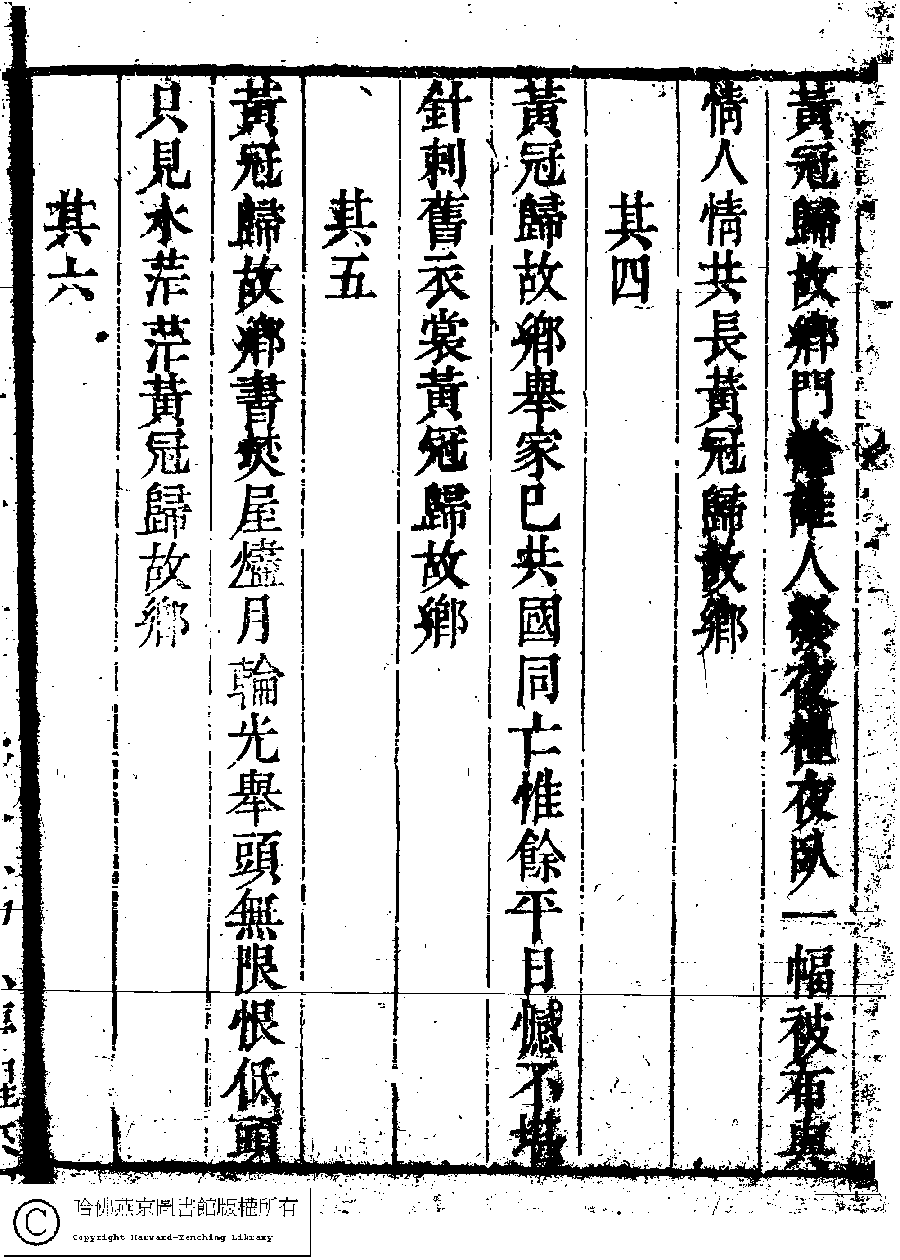 黃冠歸故鄉門誰人夜夜臥一幅被布與
情人情共長黃冠歸故鄉
其四
黃冠歸故鄉舉家已共國同亡惟餘平日憾不堪
針刺舊衣裳黃冠歸故鄉
其五
黃冠歸故鄉書焚屋燼月輪光舉頭無限恨低頭
只見水茫茫黃冠歸故鄉
其六
哈佛燕京圖書館版權所有
Copyright Harvard-Yenching Library